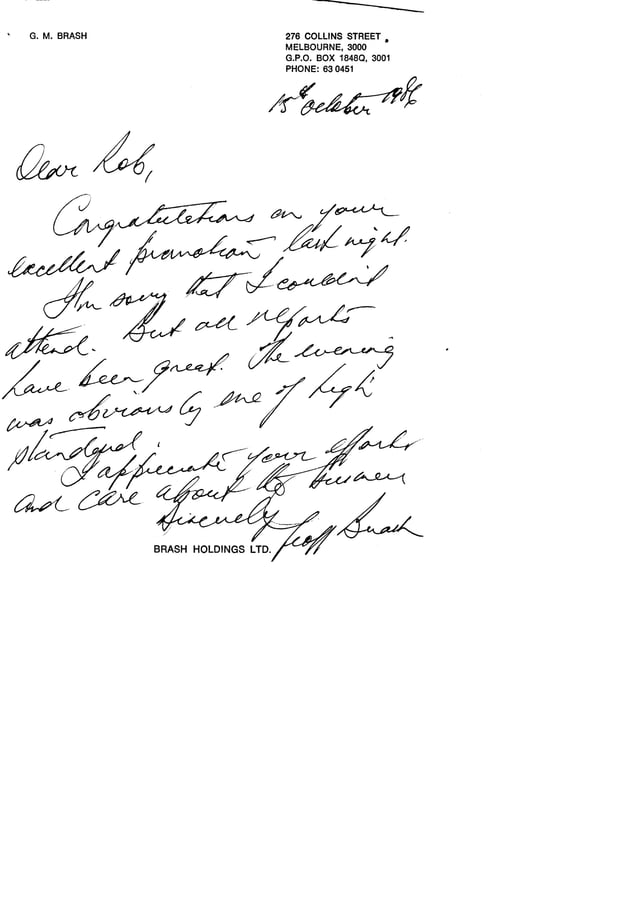 G. M. BRASH
276 COLLINS STREET
MELBOURNE, 3000
G.P.O. BOX 1848Q, 3001
PHONE: 63 0451
15th October 1986
Dear Rob,
Congratulations on your
excellent promotion last night.
I'm sorry that I couldn't
attend. But all reports
have been great. The evening
was obviously one of high
standard.
I appreciate your efforts
and care about the business
Sincerely
Geoff Brash
BRASH HOLDINGS LTD.